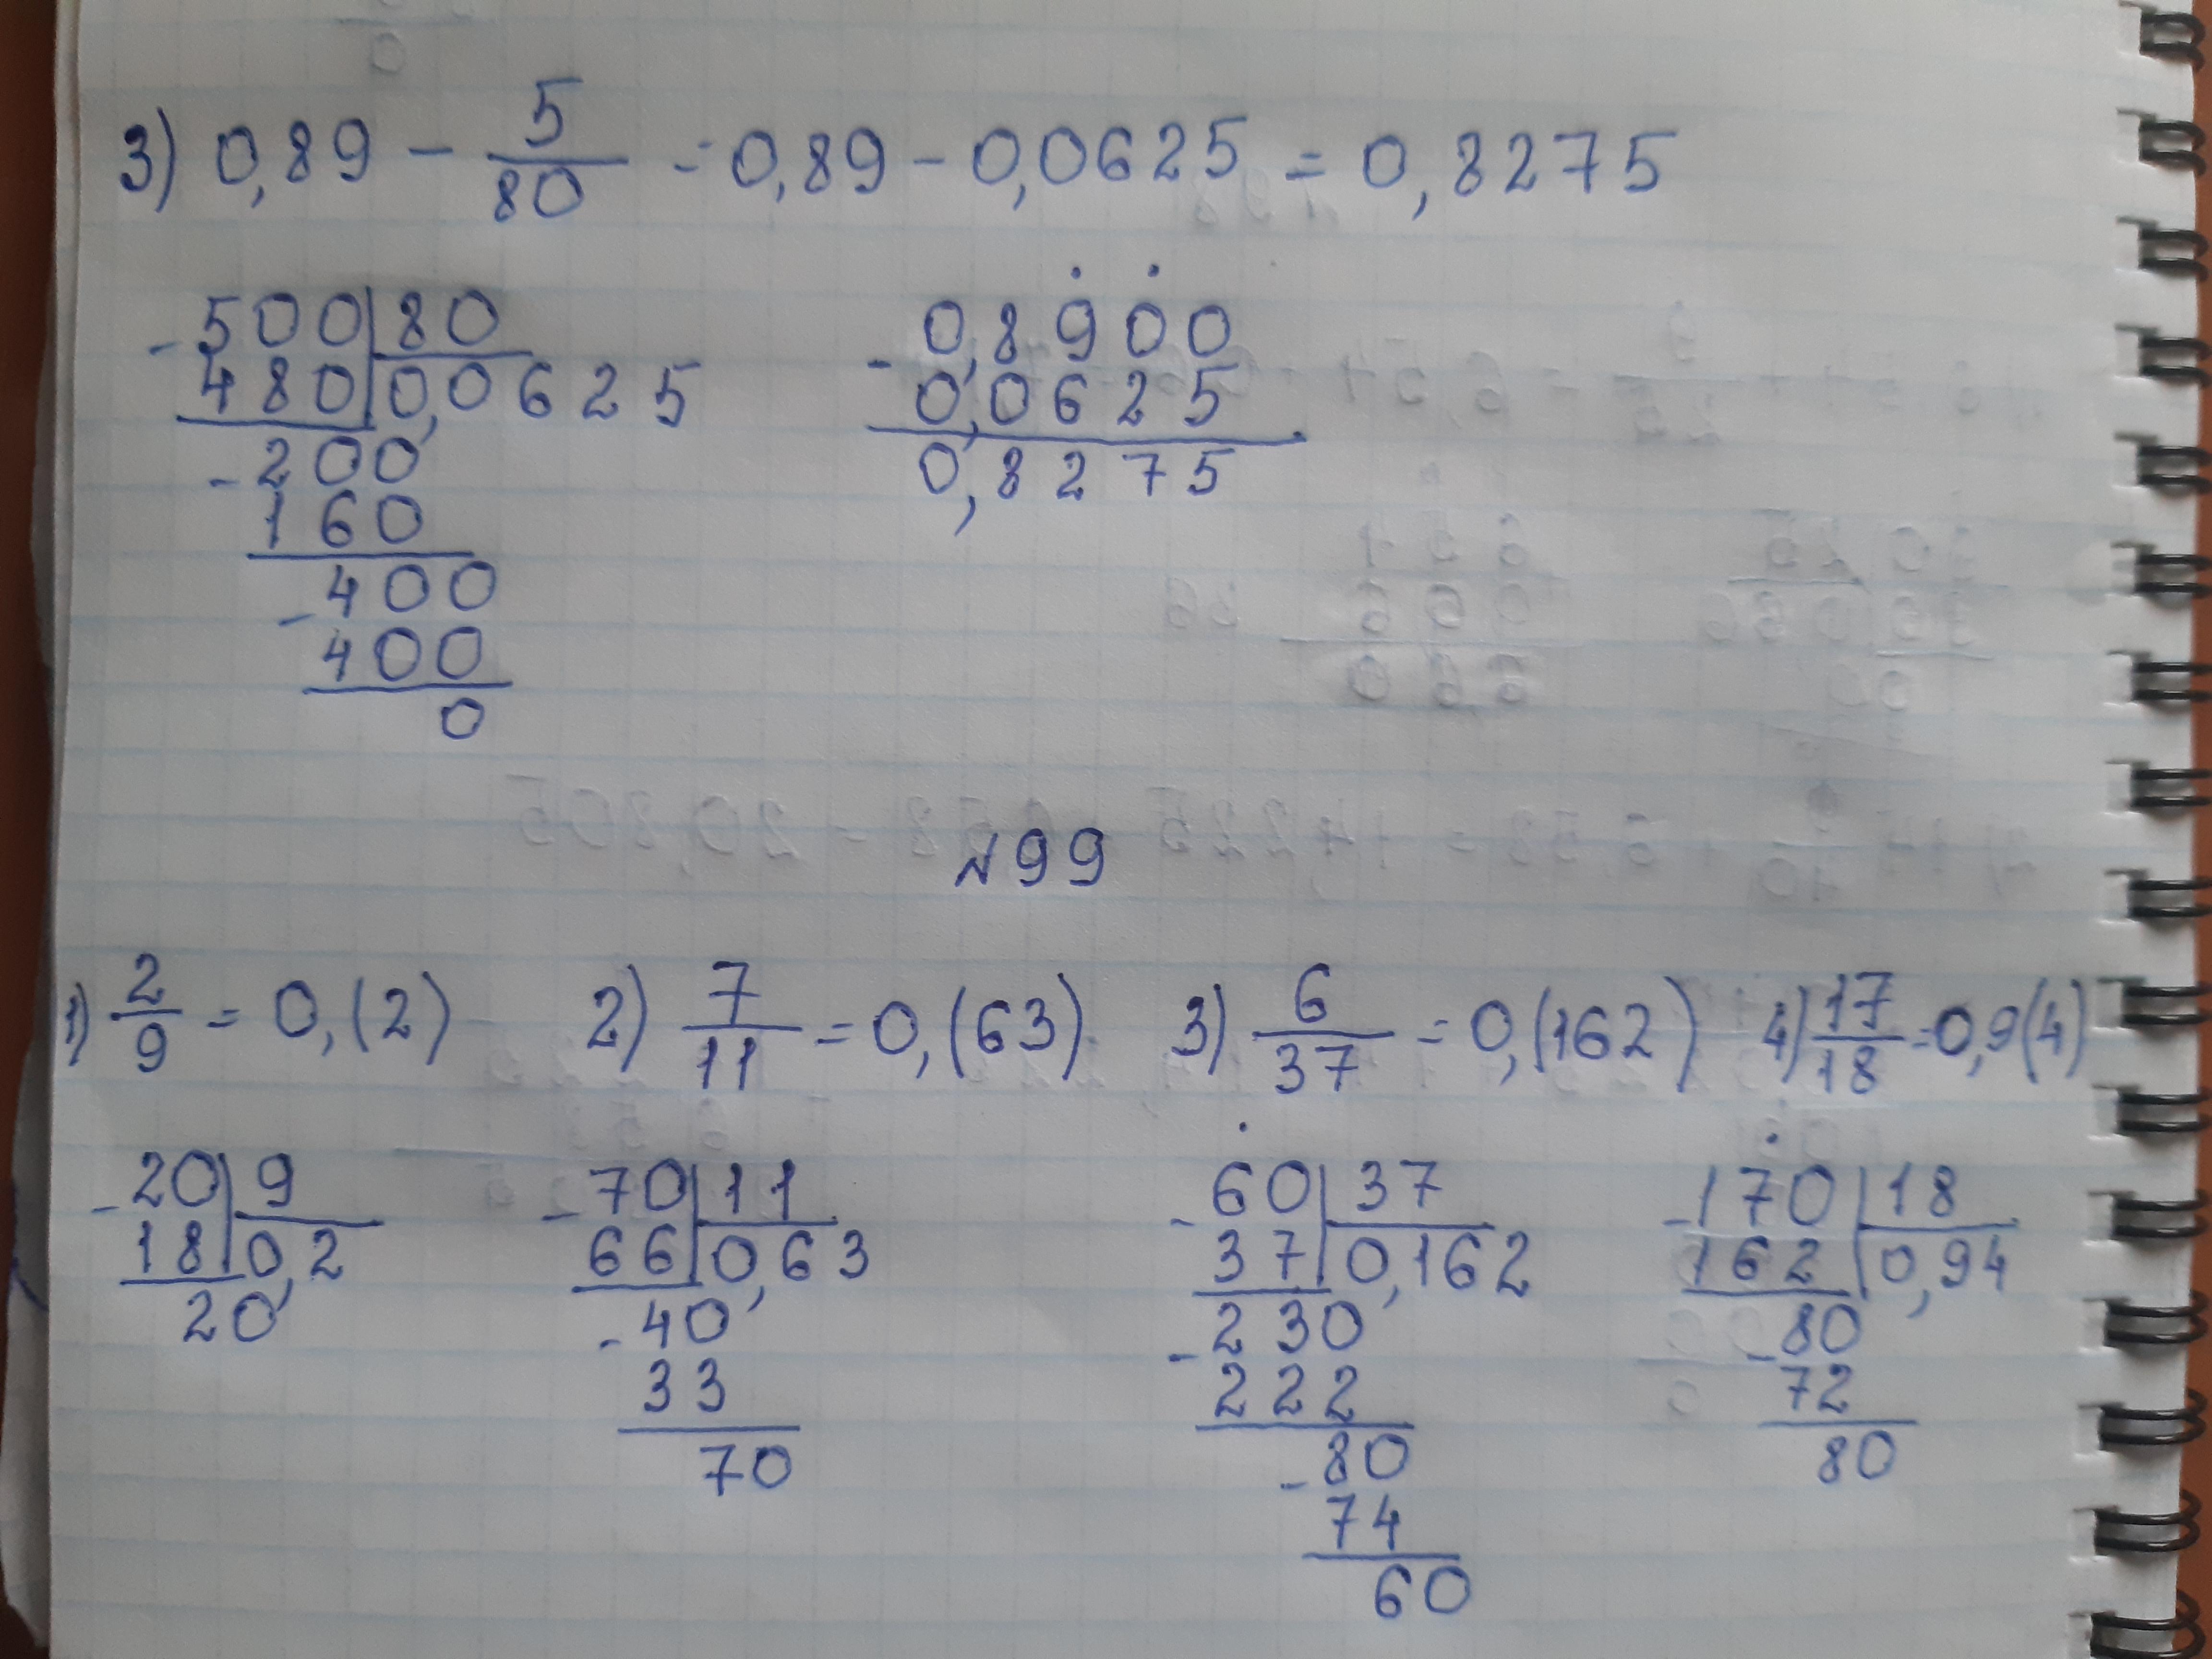 3) 0,89 - 5/80 = 0,89 - 0,0625 = 0,8275
- 500 | 80
480 | 0,0625
- 200
160
- 400
400
0
- 0,8900
0,0625
0,8275
N99
1) 2/9 = 0,(2) 2) 7/11 = 0,(63) 3) 6/37 = 0,(162) 4) 17/18 = 0,9(4)
- 20 | 9
18 | 0,2
20
- 70 | 11
66 | 0,63
- 40
33
70
- 60 | 37
37 | 0,162
- 230
222
- 80
74
60
- 170 | 18
162 | 0,94
- 80
72
80